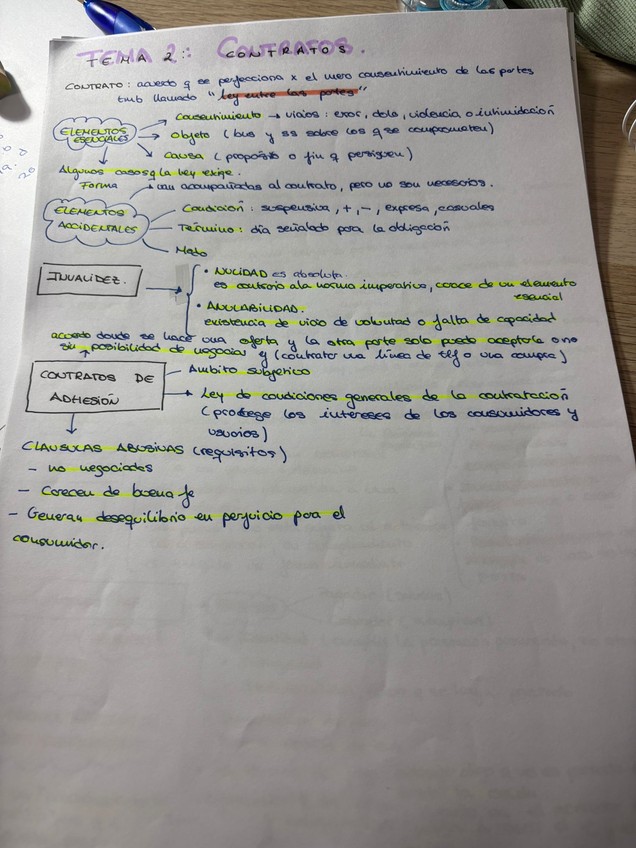 TEMA 2: CONTRATOS.
CONTRATO: acuerdo q se perfecciona x el mero consentimiento de las partes
tmb llamado "ley entre las partes"
ELEMENTOS ESENCIALES
Consentimiento → vicios: error, dolo, violencia o intimidación
Objeto (bns y ss sobre los q se comprometen)
Causa (propósito o fin q persiguen)
Algunos casos q la ley exige.
Forma
van acompañadas al contrato, pero no son necesarios.
ELEMENTOS ACCIDENTALES
Condición: suspensiva, +, -, expresa, casuales
Término: día señalado para la obligación
Modo
INVALIDEZ.
• NULIDAD es absoluta.
es contrario a la norma imperativa, carece de un elemento
esencial
• ANULABILIDAD.
existencia de vicio de voluntad o falta de capacidad
acuerdo donde se hace una oferta y la otra parte solo puede aceptarla o no
sin posibilidad de negociar y (contratar una línea de telf o una compra)
CONTRATOS DE
ADHESIÓN
Ámbito subjetivo
Ley de condiciones generales de la contratación
(protege los intereses de los consumidores y
usuarios)
CLAUSULAS ABUSIVAS (requisitos)
- no negociadas
- Carecen de buena fe
- Generan desequilibrio en perjuicio para el
consumidor.